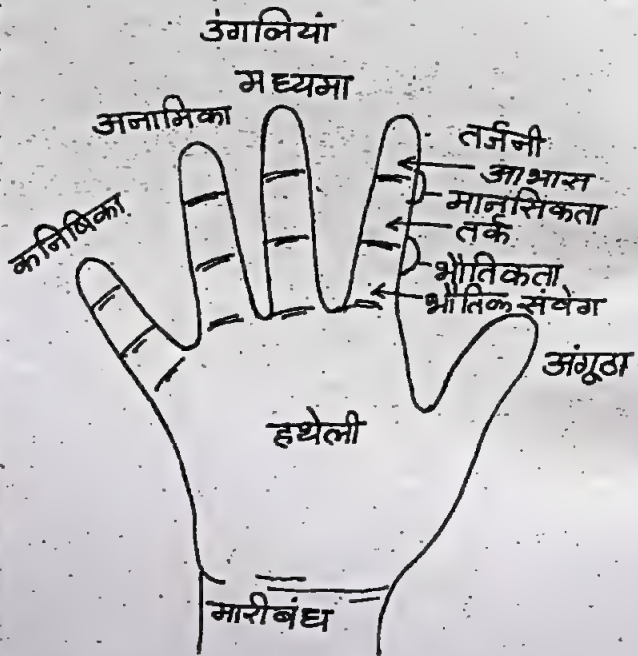 उंगलियां
मध्यमा
अनामिका
तर्जनी
आभास
मानसिकता
तर्क
कनिषिका
भौतिकता
भौतिक संवेग
अंगूठा
हथेली
मारीबंध